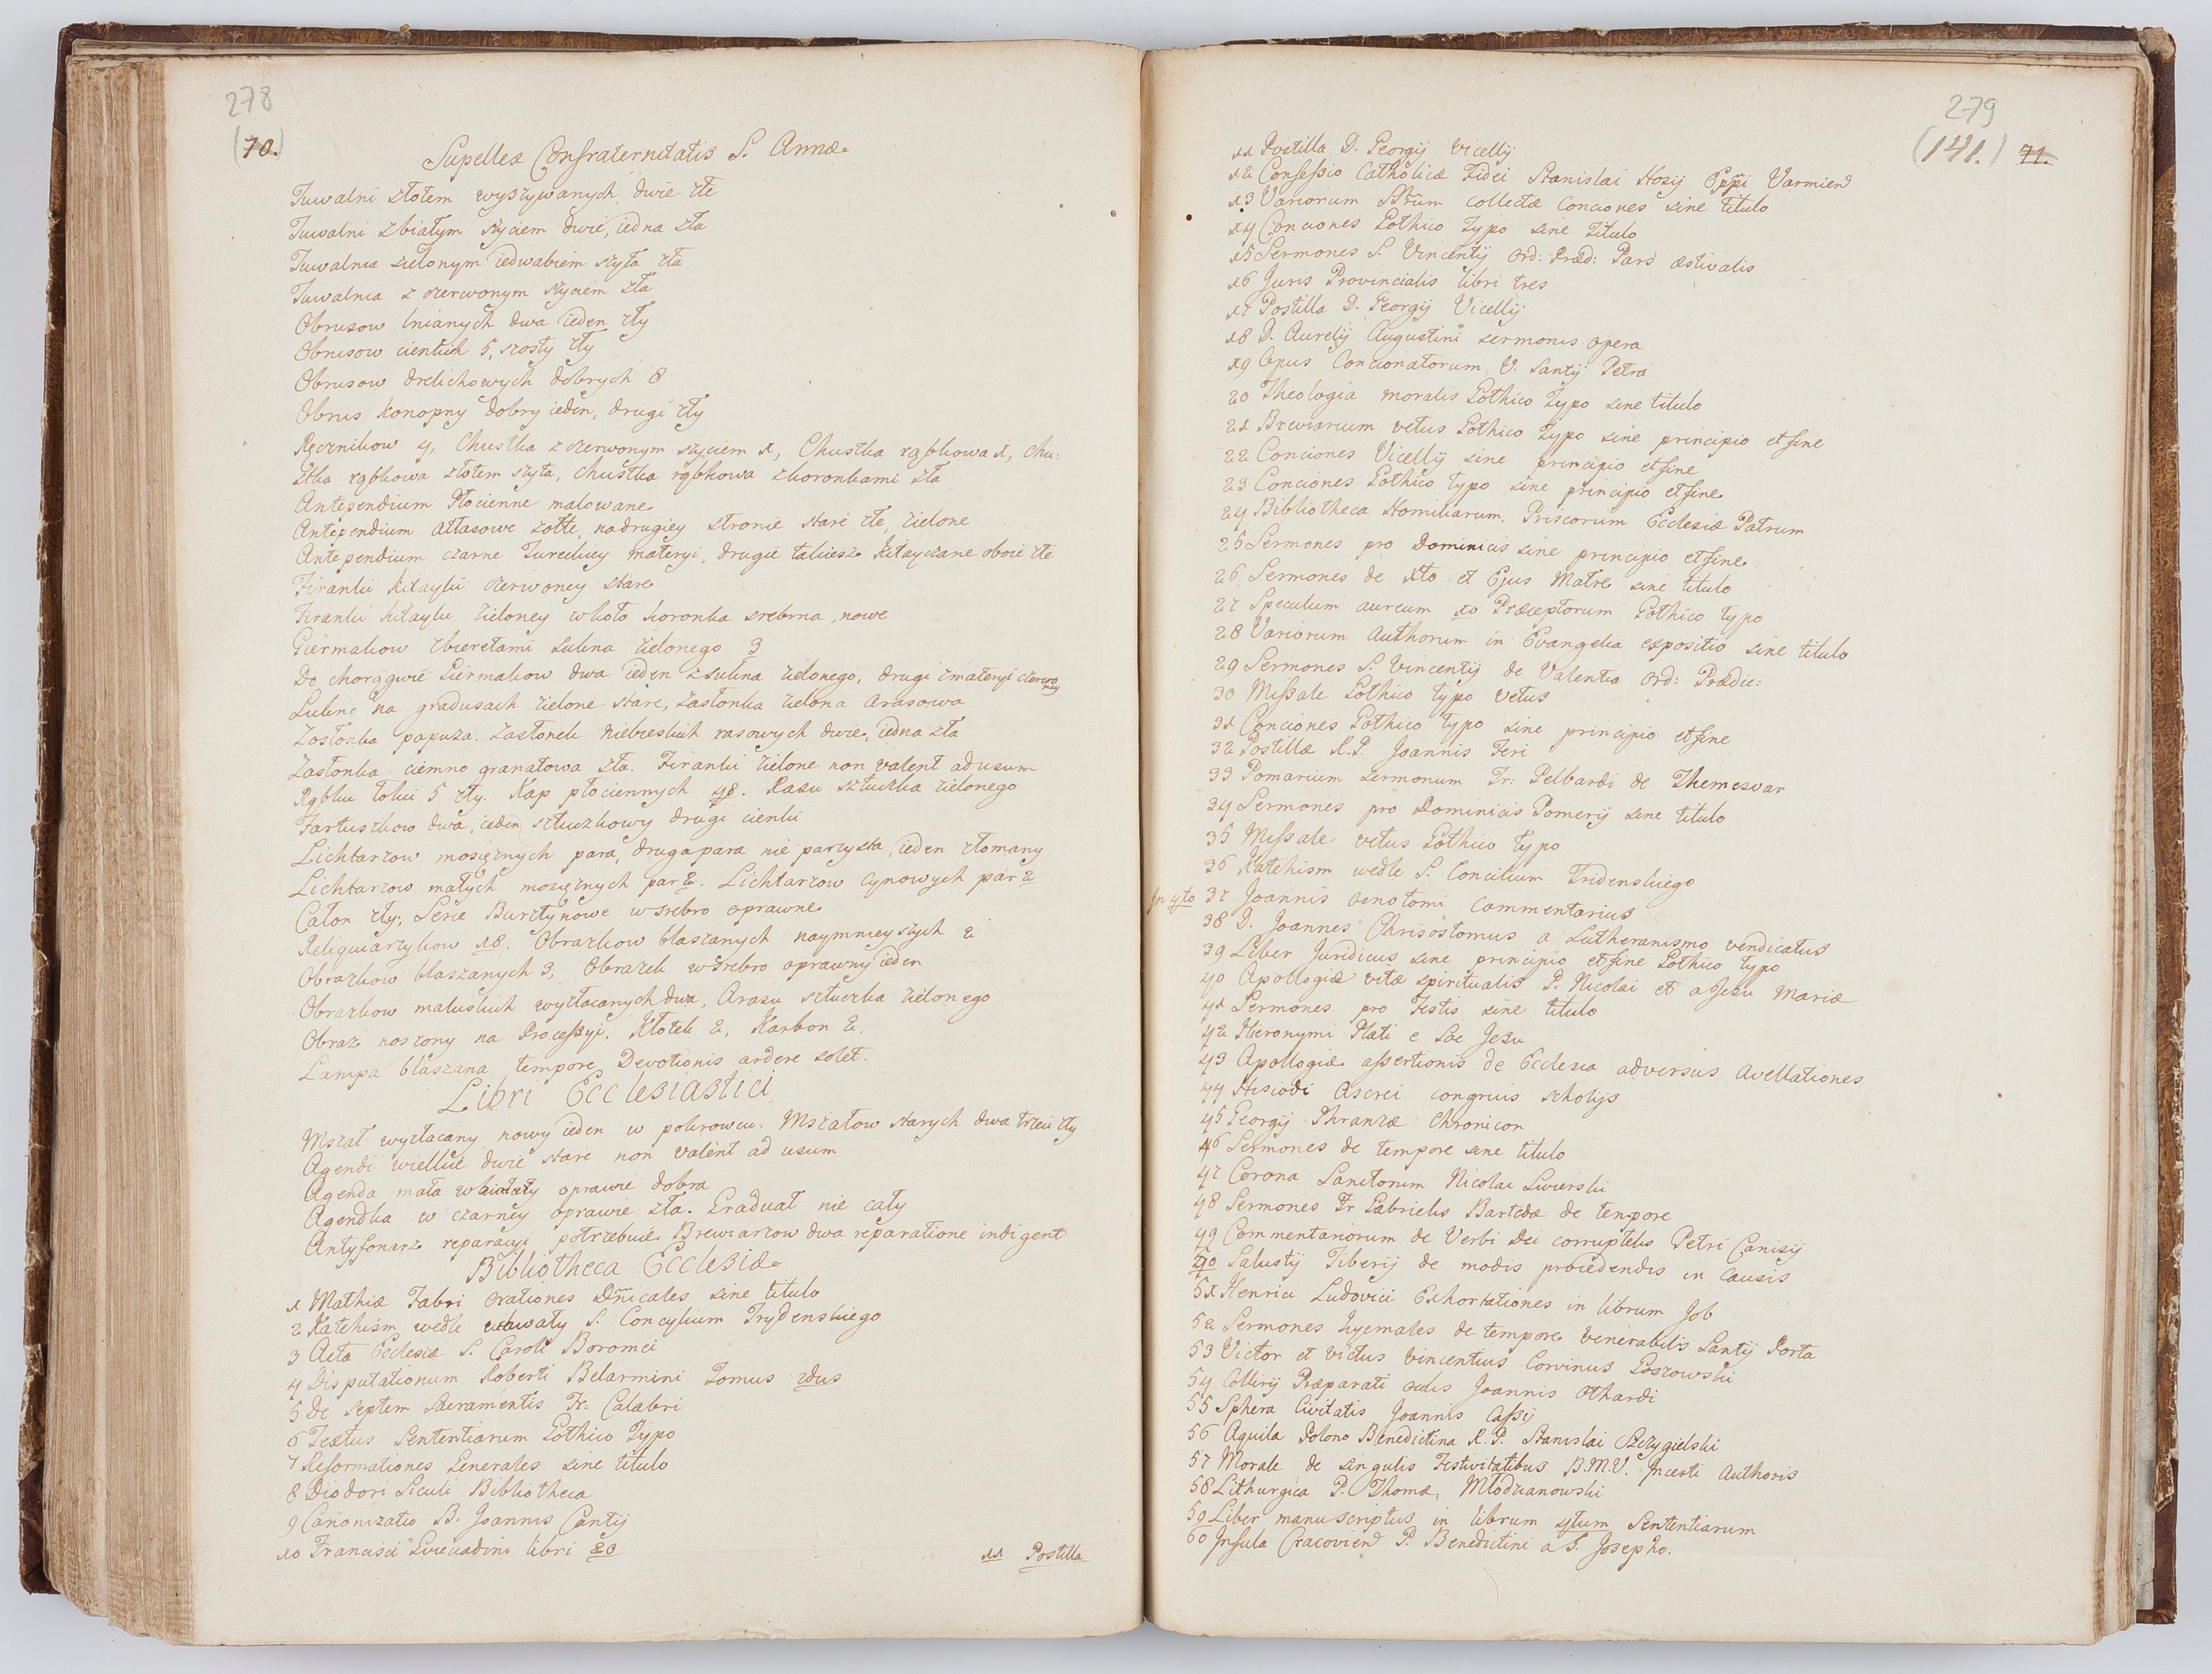 278
(70.)
Supellex Confraternitatis S. Annæ
Tuwalni złotem wyszywanych dwie złe
Tuwalni z białym szyciem dwie, iedna zła
Tuwalnia zielonym iedwabiem szyta zła
Tuwalnia z czerwonym szyciem zła
Obrusow lnianych dwa ieden zły
Obrusow cienkich 5, szosty zły
Obrusow drelichowych dobrych 8
Obrus konopny dobry ieden, drugi zły
Ręcznikow 4, Chustka z czerwonym szyciem 1, Chustka rąbkowa 1, chu:
stka rąbkowa złotem szyta, chustka rąbkowa z koronkami zła
Antepedium Płocienne malowane
Antependium attasowe żołte, na drugiey stronie stare złe zielone
Antependium czarne Tureckiey materyi, drugie takiesz kitayczane oboie złe
Firanki kitayki czerwoney stare
Firanki kitayki zieloney wkoło koronka srebrna, nowe
Giermakow z bieretami sukna zielonego 3
Do chorągwie Giermakow dwa ieden z sukna zielonego, drugi z materyi czerwo
ney
Sukne na gradusach zielone stare, zasłonka zielona arasowa
Zasłonka papuza. Zasłonek niebieskich rasowych dwie, iedna zła
Zasłonka ciemno granatowa zła. Firanki zielone non valent ad usum
Rąbku łokci 5 zły. Kap płociennych 48. Rasu sztuczka zielonego
Fartuszkow dwa, ieden sztuczkowy drugi cienki
Lichtarzow mosiężnych para, druga para nie parzysta, ieden złomany
Lichtarzow małych mosiężnych par 2. Lichtarzow cynowych par 2
Całon zły; Serce Bursztynowe w srebro oprawne
Religuiarzykow 18. Obrazkow blaszanych naymnieyszych 2
Obrazkow blaszanych 3, Obrazek w srebro oprawny ieden
Obrazkow maluskich wyzłacanych dwa, Arasu sztuczka zielonego
Obraz noszony na Processyi. Kłotek 2, Karbon 2.
Lampa blaszana tempore Devotionis ardere solet.
Libri Ecclesiastici
Mszał wyzłacany nowy ieden w pokrowcu. Mszałow starych dwa trzeci zły
Agendi wielkie dwie stare non valent ad usum
Agenda mała w białey oprawie dobra
Agendka w czarney oprawie zła. Graduał nie cały
Antyfonarz reparacyi potrzebuie Brewiarzow dwa reparatione indigent
Bibliotheca Ecclesiæ
1 Mathiæ Fabri orationes Dñicales sine titulo
2 Katehism wedle uchwały S. Concylium Trydenskiego
3 Acta Ecclesiæ S. Caroli Boromei
4 Disputationum Roberti Belarmini Tomus 2dus
5 De septem Sacramentis Fr. Calabri
6 Textus Sententiarum Gothico Typo
7 Reformationes Generales sine titulo
8 Diodori Siculi Bibliotheca
9 Canonizatio B. Joannis Cantij
10 Francisci libri 20
11 Postilla
279
(141.) 71.
11 Postilla D. Georgij Vicellij
12 Confessio Catholicæ Fidei Stanislai Hozij Eppi Varmien
13 Variorum Strum collectæ Conciones sine titulo
14 Conciones Gothico Typo sine titulo
15 Sermones S. Vincentij Ord: Præd: Pars æstivalis
16 Juris Provincialis libri tres
17 Postilla D. Georgij Vicellij
18 D. Aurelij Augustini sermonis opera
19 Opus Concionatorum V. Santij Petra
20 Theologia moralis Gothico Typo sine titulo
21 Breviarium vetus Gothico Typo sine principio et fine
22 Conciones Vicellij sine principio et fine
23 Conciones Gothico typo sine principio et fine
24 Bibliotheca Homiliarum, Priscorum Ecclesiæ Patrum
25 Sermones pro Dominicis sine principio et fine
26 Sermones de Xto et Ejus Matre sine titulo
27 Speculum aureum 10 Præceptorum Gothico typo
28 Variorum Authorum in Evangelia expositio sine titulo
29 Sermones S. Vincentij de Valentia Ord: Prædic:
30 Missale Gothico typo vetus
31 Conciones Gothico typo sine principio et fine
32 Postillæ R.P. Joannis Feri
33 Pomarium sermonum Fr: Pelbardi de Themesvar
34 Sermones pro Dominicis Pomerij sine titulo
35 Missale vetus Gothico typo
36 Katehism wedle S. Concilium Tridenskiego
In 4to 37 Joannis Arnotomi Commentarius
38 D. Joannes Chrisostomus a Lutheranismo vendicatus
39 Liber Juridicus sine principio et fine Gothico typo
40 Apologiæ vitæ spiritualis P. Nicolai et a Jesu Mariæ
41 Sermones pro Festis sine titulo
42 Hieronymi Plati e Soc Jesu
43 Apollogiæ assertionis de Ecclesia adversus Avellationes
44 Hesiodi Ascrei congruis scholijs
45 Georgij Phranzæ Chronicon
46 Sermones de tempore sine titulo
47 Corona Sanctorum Nicolai Swierski
48 Sermones Fr Gabrielis Bartedæ de tempore
49 Commentariorum de Verbi Dei corruptelis Petri Canisij
50 Salustij Tiberij de modis procedendis in causis
51 Henrici Ludovici Exhortationes in librum Job
52 Sermones hyemales de tempore venerabilis Santij Porta
53 Victor et victus Vincentius Corvinus Goszowski
54 Collirij Præparati oculis Joannis Othardi
55 Sphera Civitatis Joannis Cassij
56 Aquila Polono Benedictina R.P. Stanislai Szczygielski
57 Morale de singulis Festivitatibus B.M.V. Incerti Authoris
58 Lithurgica P. Thomæ, Młodzianowski
59 Liber manuscriptus in librum 4tum Sententiarum
60 Insula Cracovien P. Benedictini a S. Josepho.